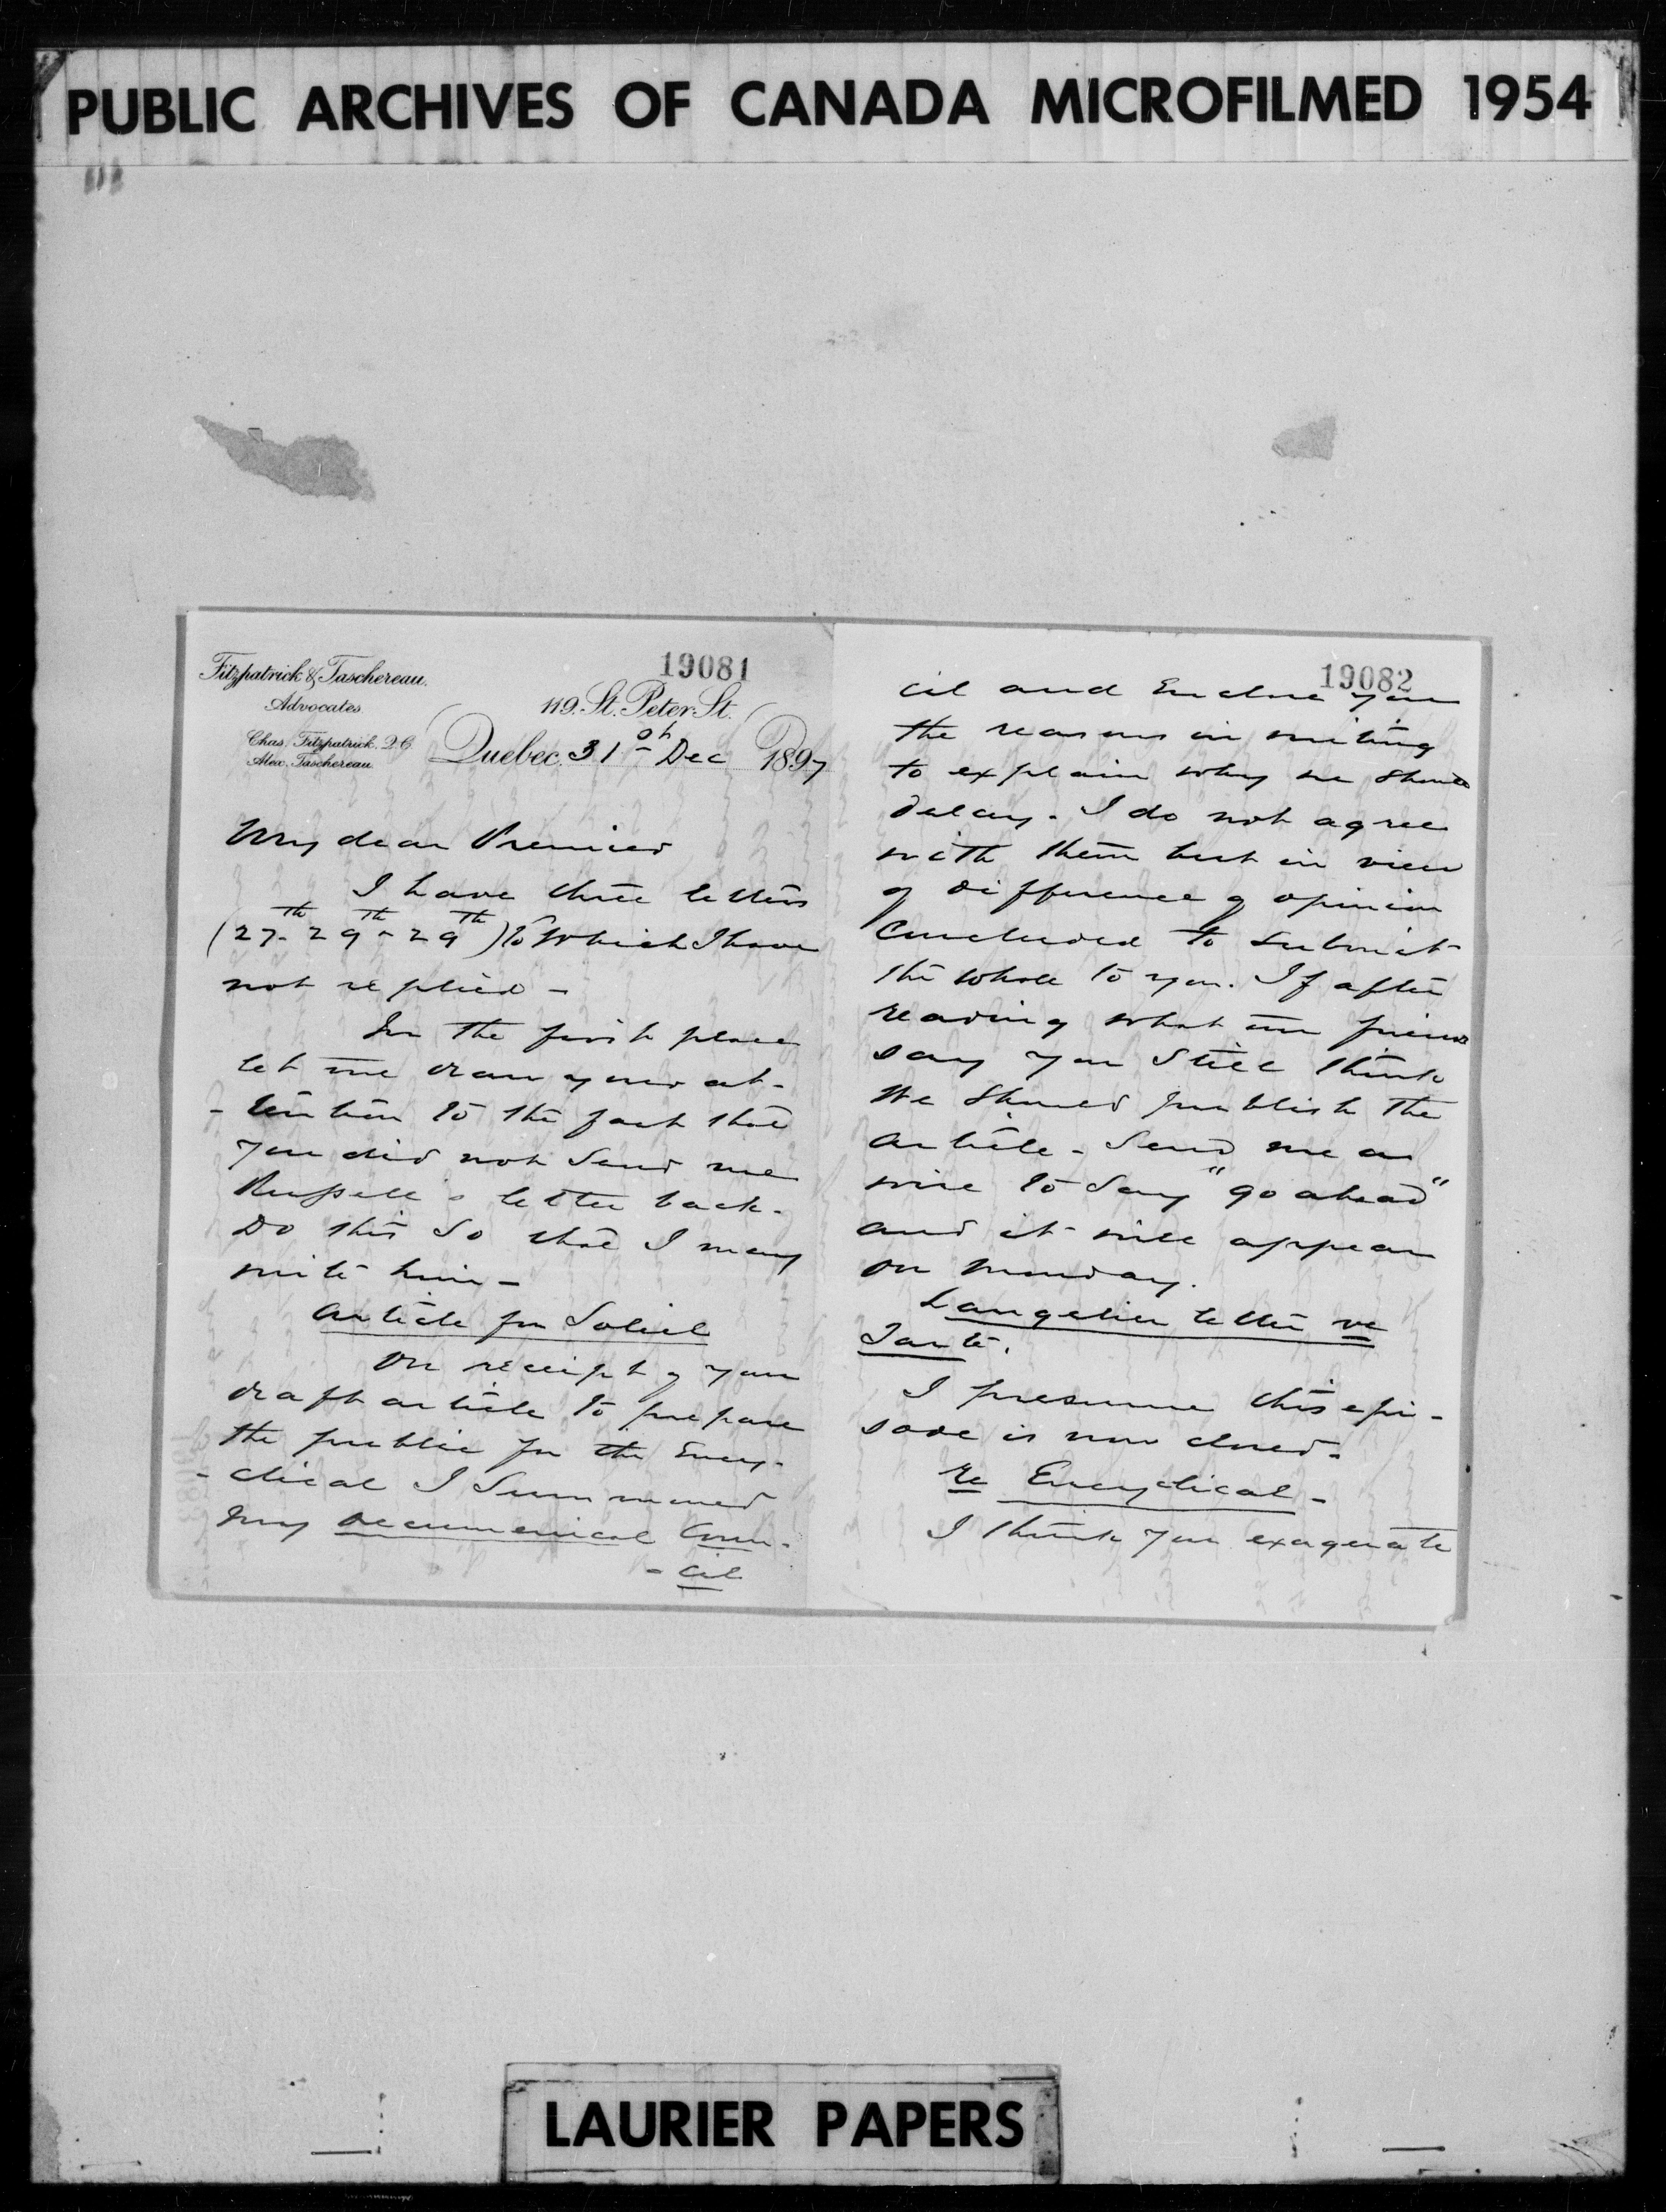 PUBLIC ARCHIVES OF CANADA MICROFILMED 1954
19081
Fitzpatrick & Taschereau.
Advocates
119. St. Peter St.
Chas. Fitzpatrick. Q.C.
Alex. Taschereau
Quebec, 31st Dec 1897
My dear Premier
I have three letters
(27th 29th - 29th) to which I have
not replied -
In the first place
let me draw your at-
-tention to the fact that
you did not send me
Russell's letter back.
Do this so that I may
write him -
Article for Soleil
On receipt of your
draft article to prepare
the public for the Ency-
-clical I summoned
my oecumenical Coun-
-cil
19082
cil and Enclose you
the reasons in writing
to explain why we should
delay. I do not agree
with them but in view
of difference of opinion
concluded to submit
the whole to you. If after
reading what our friends
say you still think
we should publish the
article - Send me a
wire to say "go ahead"
and it will appear
on Monday.
Langelier letter re
Tarte.
I presume this epi-
sode is now closed.
Re Encyclical -
I think you exagerate
LAURIER PAPERS